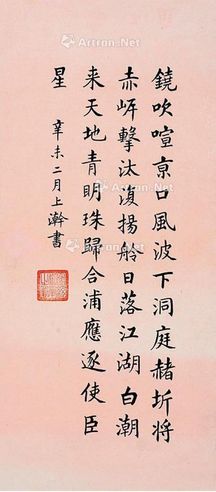 鐃吹喧京口風波下洞庭赭圻將
赤岍擊汰復揚舲日落江湖白潮
来天地青明珠歸合浦應逐使臣
星
辛未二月上澣書
Artron.Net
Artron.Net